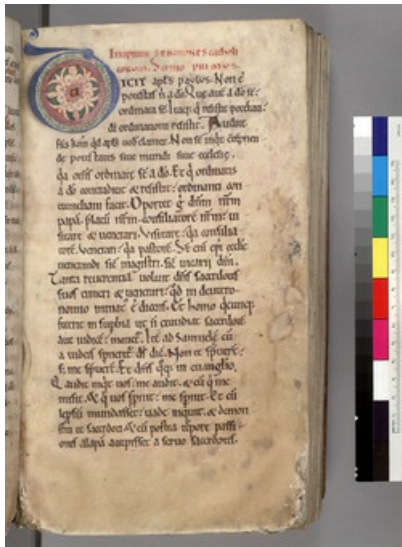 Incipiunt sermones catholi
corum. Sermo primus.
DICIT apls paulus. Non ē
potestas n̄ a do. Que aut̄ a do st̄
ordinata st̄. Itaq; q̇ resistit potestati
di ordinationi resistit. Audite
frs kmi qd apls uos clamet. Non
de potestates siue mundi siue ecclesie.
qa oēs ordinate st̄ a do. Et q̇ ordinatis
a do contradicit & resistit: ordinanti con
tumeliam facit. Oportet g̊ dn̄m nr̄m
papā. placitū nr̄m consiliatorē nr̄m ui
sitare & uenerari. Visitare: qa consilia
torē. Venerari: qa pastorē. De eni epi ecclie
uenerandi st̄ magistri. st̄ uicarii dn̄i.
Tanta reuerentia uoluit dn̄s sacerdotes
suos timeri & uenerari: qd in deutero
nomio minat̄ ē dicens. Et homo q̇cumq;
fuerit in supbia ut n̄ exaudiat sacerdotē
aut iudicē: moriet̄. Itē ad samuelē cū
a iudeis spneret̄ ds̄ dic̄. Non te spreuert̄:
s; me spreuert̄. Et dn̄s q̇q; in euanglio.
Qui audit inq̇t uos: me audit. & eū q̇ me
misit. & q̇ uos spnit: me spnit. Et cū
leprosū mundasset: uade inquit. & demon
stra te sacerdoti. & cū postea tēpore passi
onis alapā accepisset a seruo sacerdotis.